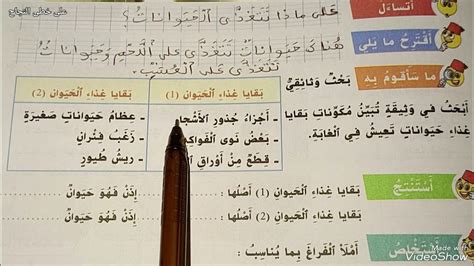 على خطى النجاح
أَتَساءَلُ
عَلى ماذا تَتَغَذّى الْحَيَواناتُ؟
أَقْتَرِحُ ما يَلي
هُناكَ حَيَواناتٌ تَتَغَذّى عَلى اللَّحْمِ وَحَيَواناتٌ
تَتَغَذّى عَلى الْعُشْبِ.
ما سَأَقومُ بِهِ
بَحْثٌ وَثائِقِيٌّ
أَبْحَثُ في وَثيقَةٍ تُبَيِّنُ مُكَوِّناتِ بَقايا
غِذاءِ حَيَواناتٍ تَعيشُ في الْغابَةِ.
بَقايا غِذاءِ الْحَيَوانِ (1)
أَجْزاءُ جُذورِ الْأَشْجارِ
بَعْضُ نَوى الْفَواكِهِ
قِطَعٌ مِنْ أَوْراقِ
بَقايا غِذاءِ الْحَيَوانِ (2)
عِظامُ حَيَواناتٍ صَغيرَةٍ
زَغَبُ فِئْرانٍ
ريشُ طُيورٍ
أَسْتَنْتِجُ
بَقايا غِذاءِ الْحَيَوانِ (1) أَصْلُها: إِذَنْ فَهُوَ حَيَوانٌ
بَقايا غِذاءِ الْحَيَوانِ (2) أَصْلُها: إِذَنْ فَهُوَ حَيَوانٌ
أَسْتَخْلِصُ
أَمْلَأُ الْفَراغَ بِما يُناسِبُ:
Made with
VideoShow